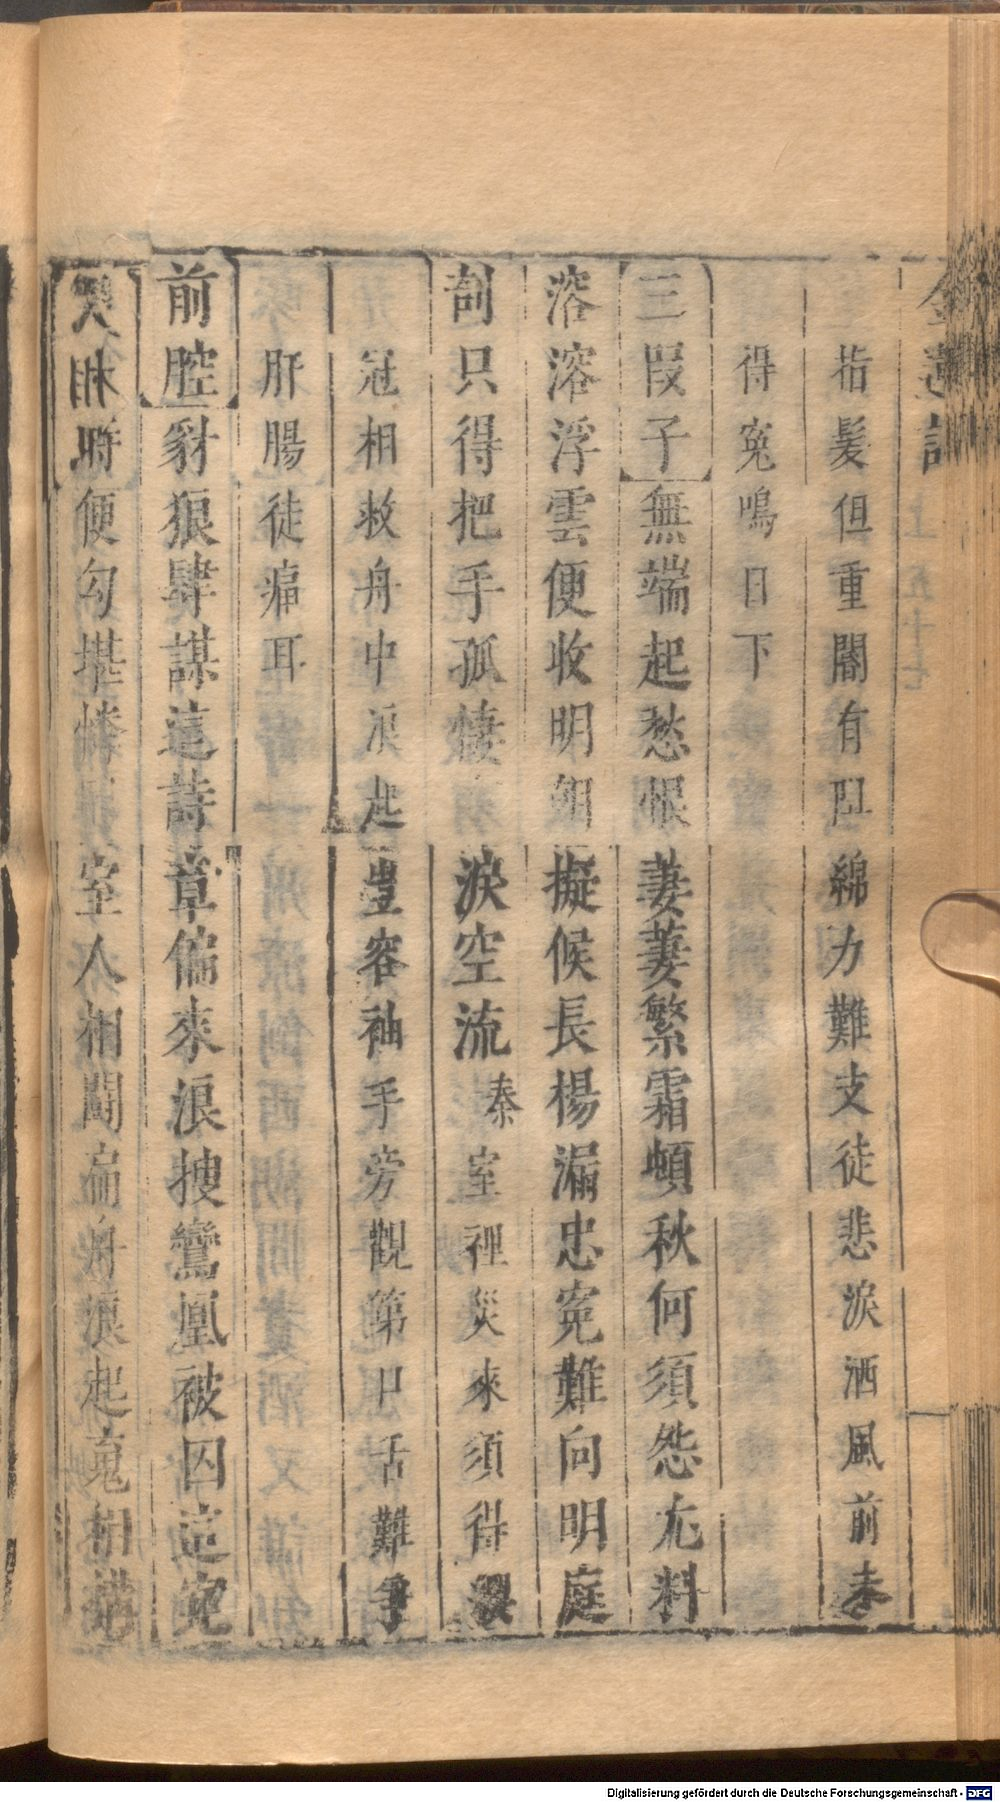 指髮但重閽有阻綿力難支徒悲淚洒風前未
得寃鳴日下
三叚子無端起愁恨萋萋繁霜頓秋何須怨尢料
溶溶浮雲便收明朝擬候長楊漏忠寃難向明庭
剖只得把手孤悽淚空流秦室裡災來須得
冠相救舟中浪起豈容袖手旁觀第口舌難爭
肝腸徒痛耳
前腔豺狼肆謀這詩章偏來浪搜鸞凰被囚這寃
相時便勾堪憐室人相鬪扁舟浪起
Digitalisierung gefördert durch die Deutsche Forschungsgemeinschaft - DFG